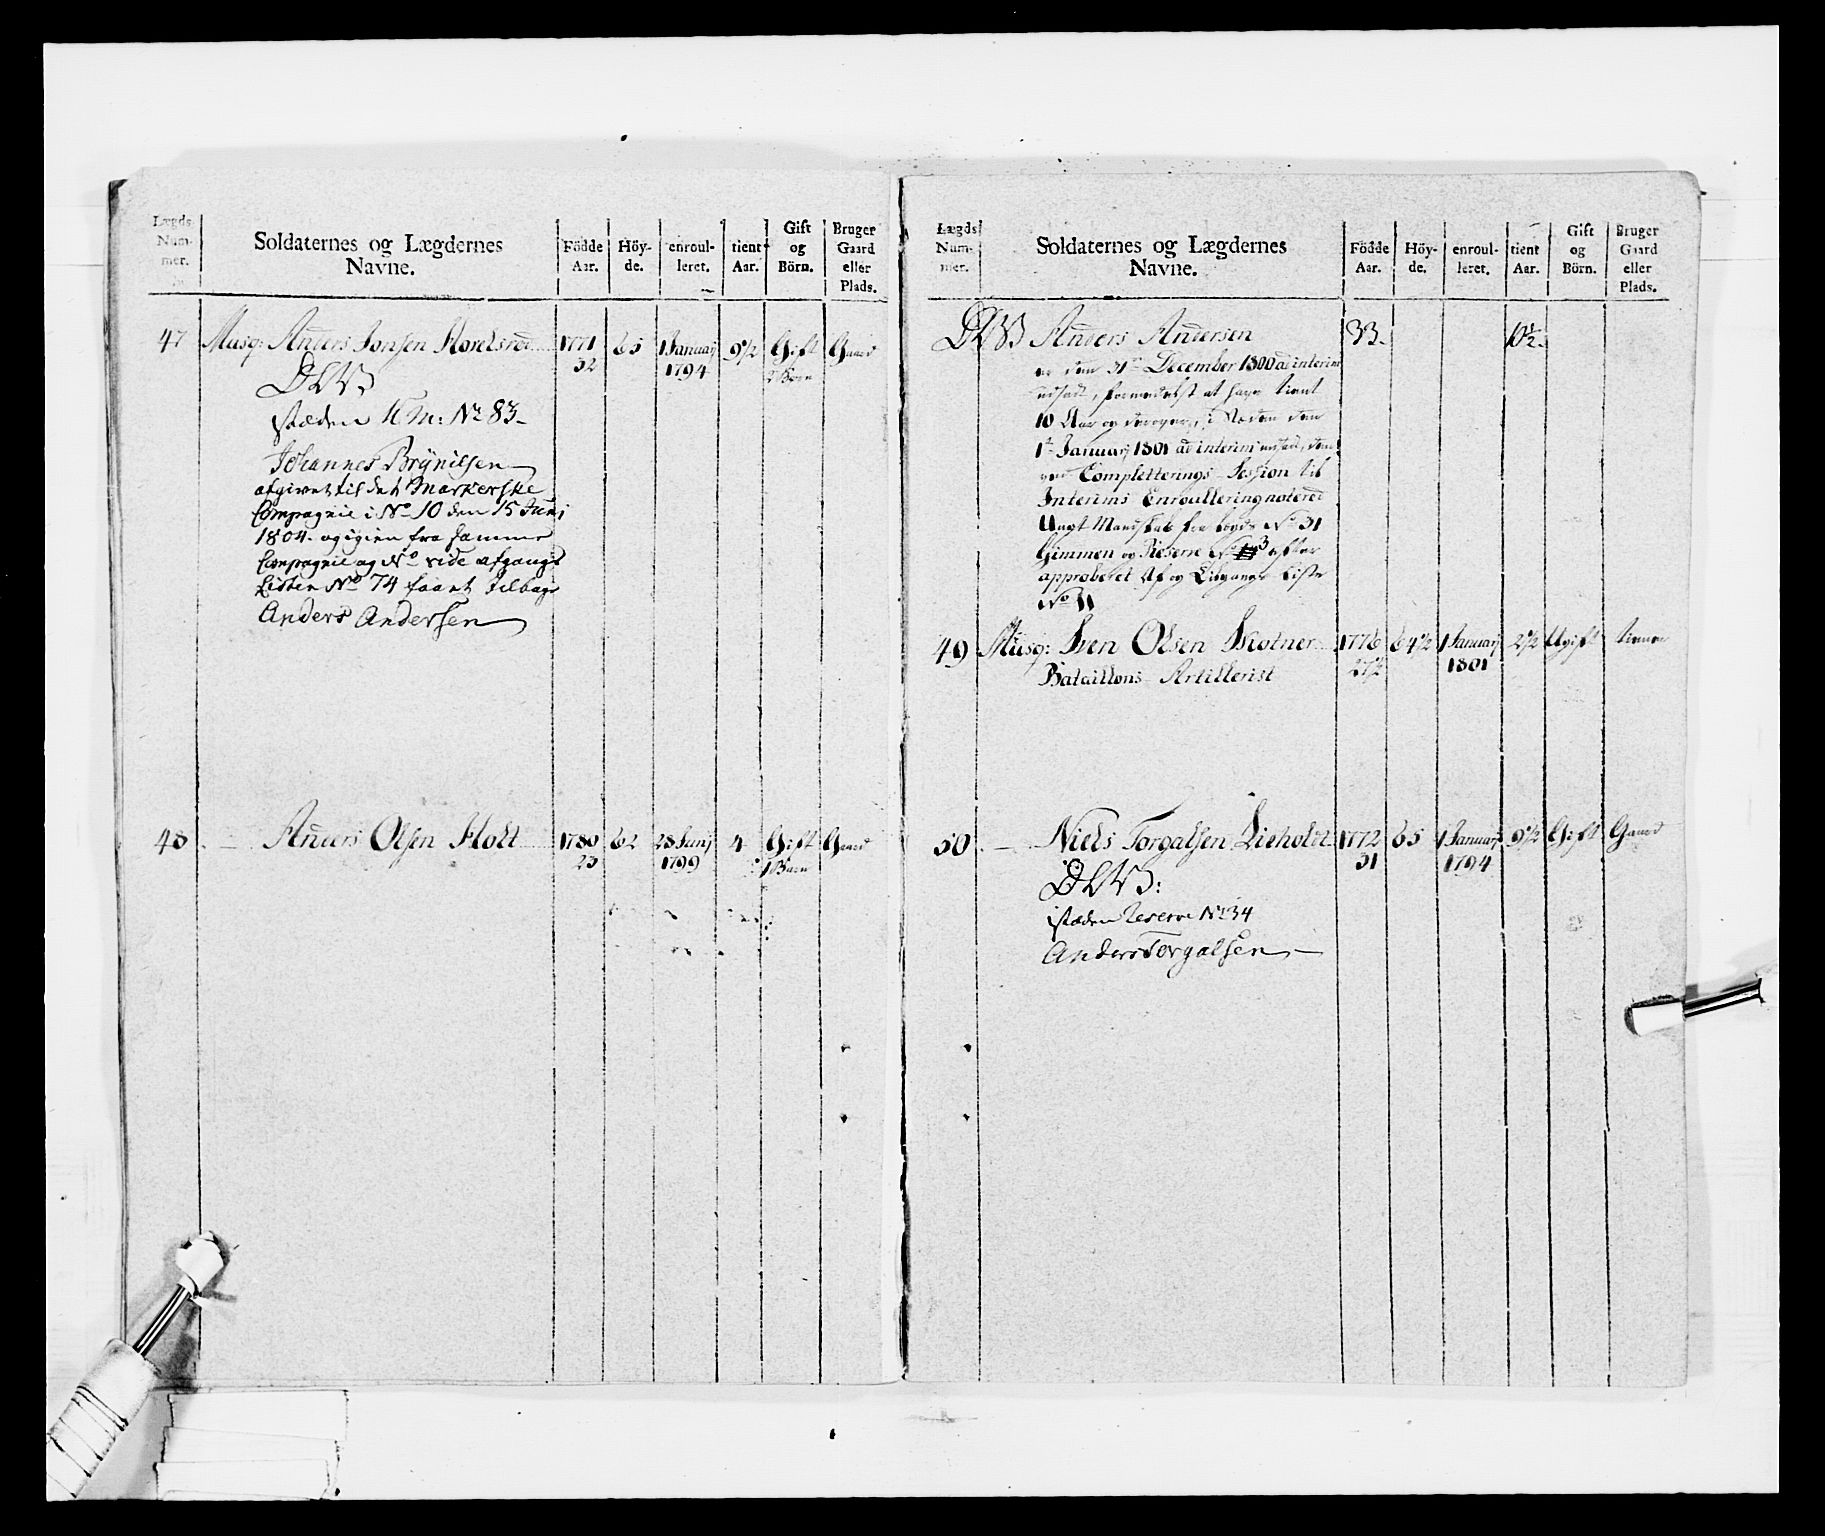 Lægds Num- mer.
Soldaternes og Lægdernes Navne.
Födde Aar.
Höy- de.
enroul- leret.
tient Aar.
Gift og Börn.
Bruger Gaard eller Plads.
47 Musq: Anders Jonsen 1771 65 1 Januarj 9½ Gift Gaard
32 1794 2 Børn
stæden No 83
Johannes Brÿnilsen
afgivet til det Markerske
Compagnie i No 10 den 15 Junj
1804. og igien fra samme
Compagnie og No vide afgangs
Listen No 74 faaet tilbage
Anders Andersen
48 — Anders Olsen Holt 1780 62 28 Junj 4 Gift Gaard
23 1799 1 Barn
Lægds Num- mer.
Soldaternes og Lægdernes Navne.
Födde Aar.
Höy- de.
enroul- leret.
tient Aar.
Gift og Börn.
Bruger Gaard eller Plads.
Anders Andersen 33. 10½.
er den 31te December 1800 ad interim
udsadt, formedelst at have tient
10 Aar og derover, i Stæden den
1te Januarj 1801 ad interim
ved Completterings Session til
Interims Enroullering noteret
Ungt Mandskab fra Lægds No 31
Gimmen og Reserve No 3 efter
approberet Af og Tilgangs Liste
No 11
49 Musq: Sven Olsen 1776 64½ 1 Januarj 2½ Ugift tiener
Bataillons Artillerist 27½ 1801
50 — Niels Torgalsen Lieholdt 1772 65 1 Januarj 9½ Gift Gaard
31 1794
istæden Reserve No 34
Anders Torgalsen